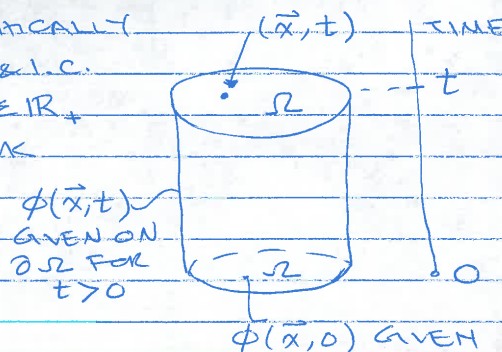 TICALLY (x⃗, t) TIME
& I.C.
∈ ℝ₊ Ω t
φ(x⃗, t)
GIVEN ON
∂Ω FOR
t > 0 Ω 0
φ(x⃗, 0) GIVEN